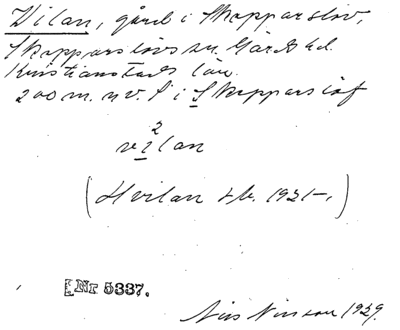 Vilan, gård i Skopparslöv,
Skopparslövs sn. Gärds hd.
Kristianstads län.
200 m. n v. S i Skopparslöf
2
vilan
(Hvilan Jb. 1921–.)
[Nr 5337.
Nils Nilsson 1929.